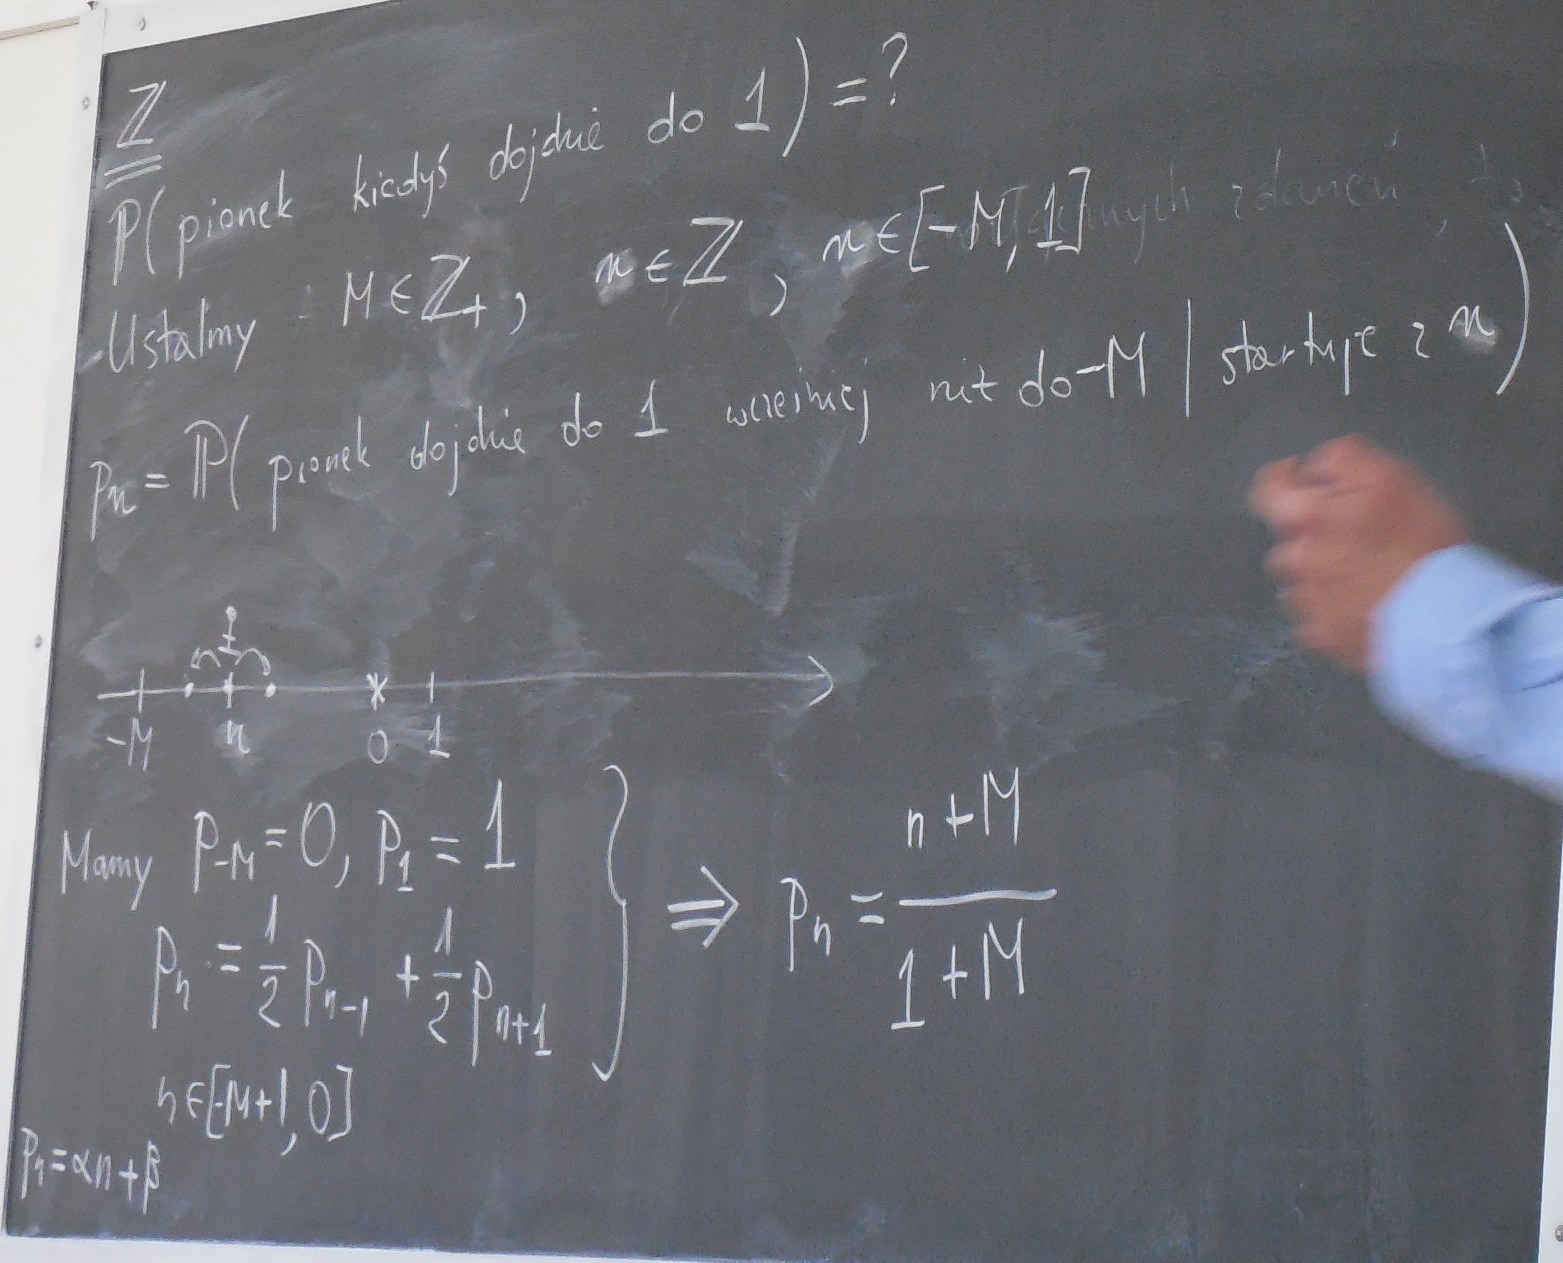 ℤ
ℙ(pionek kiedyś dojdzie do 1) = ?
Ustalmy M∈ℤ₊, n∈ℤ, n∈[-M,1]
pₙ = ℙ(pionek dojdzie do 1 wcześniej niż do -M | startuje z n)
-M n 0 1
Mamy p₋M = 0, p₁ = 1
pₙ = 1/2 pₙ₋₁ + 1/2 pₙ₊₁ } ⇒ pₙ = (n+M)/(1+M)
n∈[-M+1,0]
pₙ = αn+β